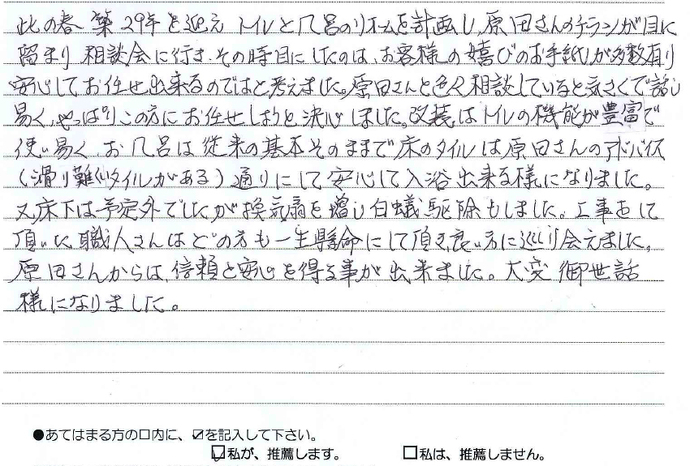 此の春 築29年を迎え トイレと風呂のリホームを計画し、原田さんのチラシが目に
留まり 相談会に行き、その時目にしたのは、お客様の嬉びのお手紙が多数有り
安心してお任せ出来るのではと考えました。原田さんと色々相談していると気さくで話し
易く、やっぱりこの方にお任せしようと決心しました。改装はトイレの機能が豊富で
使い易く、お風呂は従来の基本そのままで床のタイルは原田さんのアドバイス
(滑り難いタイルがある)通りにして安心して入浴出来る様になりました。
又床下は予定外でしたが換気扇を増し白蟻駆除もしました。工事をして
頂いた職人さんはどの方も一生懸命にして頂き良い方に巡り会えました。
原田さんからは、信頼と安心を得る事が出来ました。大変御世話
様になりました。
●あてはまる方の口内に、☑を記入して下さい。
☑私が、推薦します。 □私は、推薦しません。